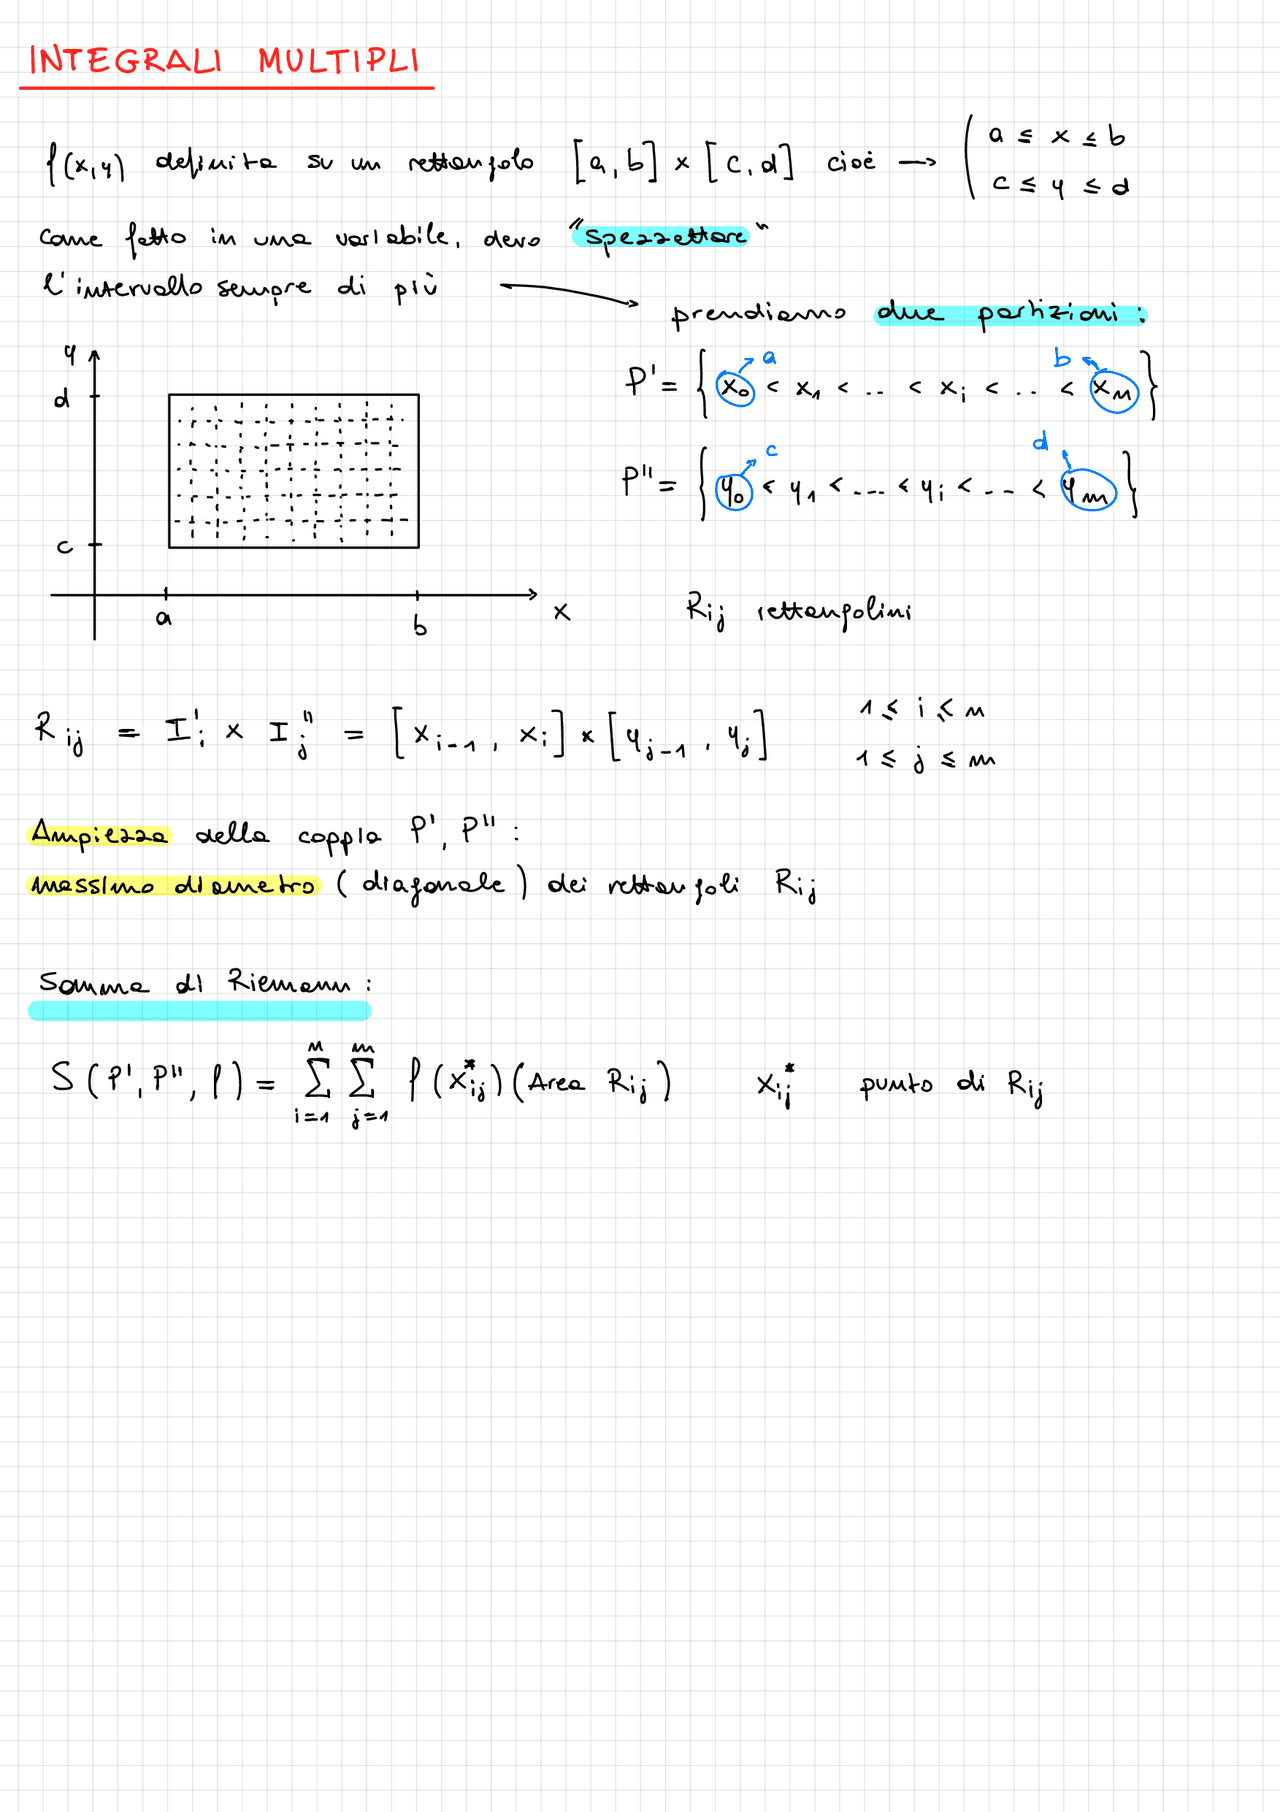 INTEGRALI MULTIPLI
f(x,y) definita su un rettangolo [a,b] × [c,d] cioè → ( a ≤ x ≤ b
c ≤ y ≤ d
Come fatto in una variabile, devo "spezzettare"
l'intervallo sempre di più →
prendiamo due partizioni:
a b
P' = { x₀ < x₁ < .. < xᵢ < .. < xₙ }
c d
P'' = { y₀ < y₁ < ... < yᵢ < .. < yₘ }
y
d
c
a b x
Rij rettangolini
Rij = I'i × I''j = [xi-1, xi] × [yj-1, yj] 1 ≤ i ≤ n
1 ≤ j ≤ m
Ampiezza della coppia P', P'' :
massimo diametro (diagonale) dei rettangoli Rij
Somma di Riemann :
n m
S(P', P'', f) = Σ Σ f(x*ij)(Area Rij) x*ij punto di Rij
i=1 j=1